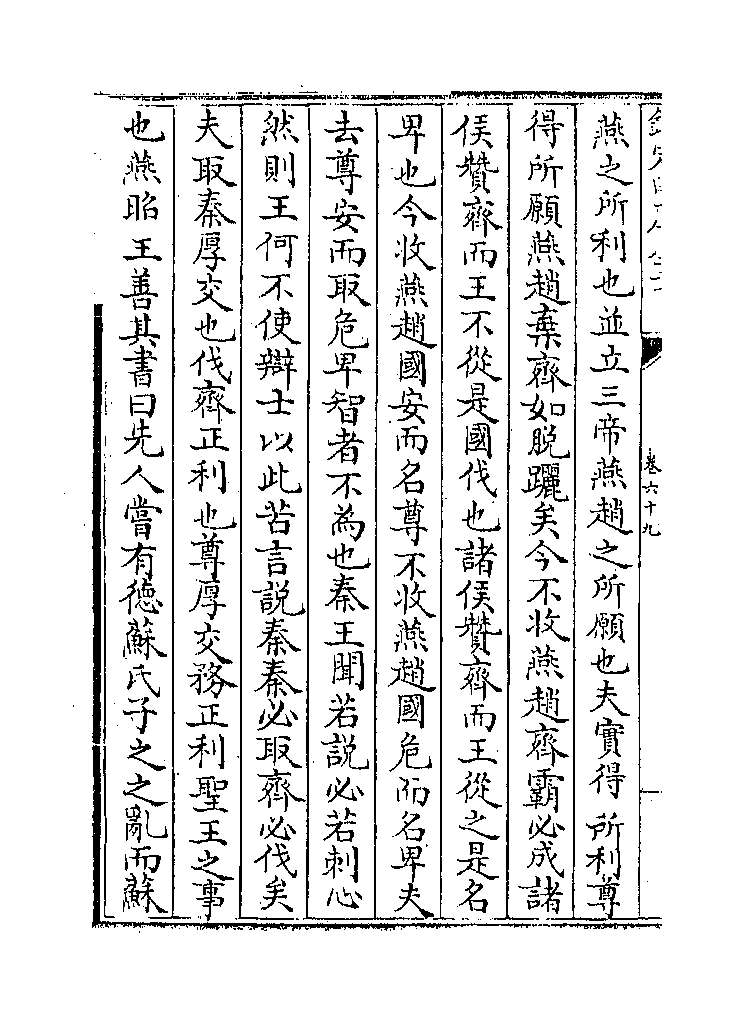 卷六十九
燕之所利也並立三帝燕趙之所願也夫實得所利尊
得所願燕趙棄齊如脫躧矣今不收燕趙齊霸必成諸
侯贊齊而王不從是國伐也諸侯贊齊而王從之是名
卑也今收燕趙國安而名尊不收燕趙國危而名卑夫
去尊安而取危卑智者不為也秦王聞若說必若刺心
然則王何不使辯士以此苦言說秦秦必取齊必伐矣
夫取秦厚交也伐齊正利也尊厚交務正利聖王之事
也燕昭王善其書曰先人嘗有德蘇氏子之之亂而蘇